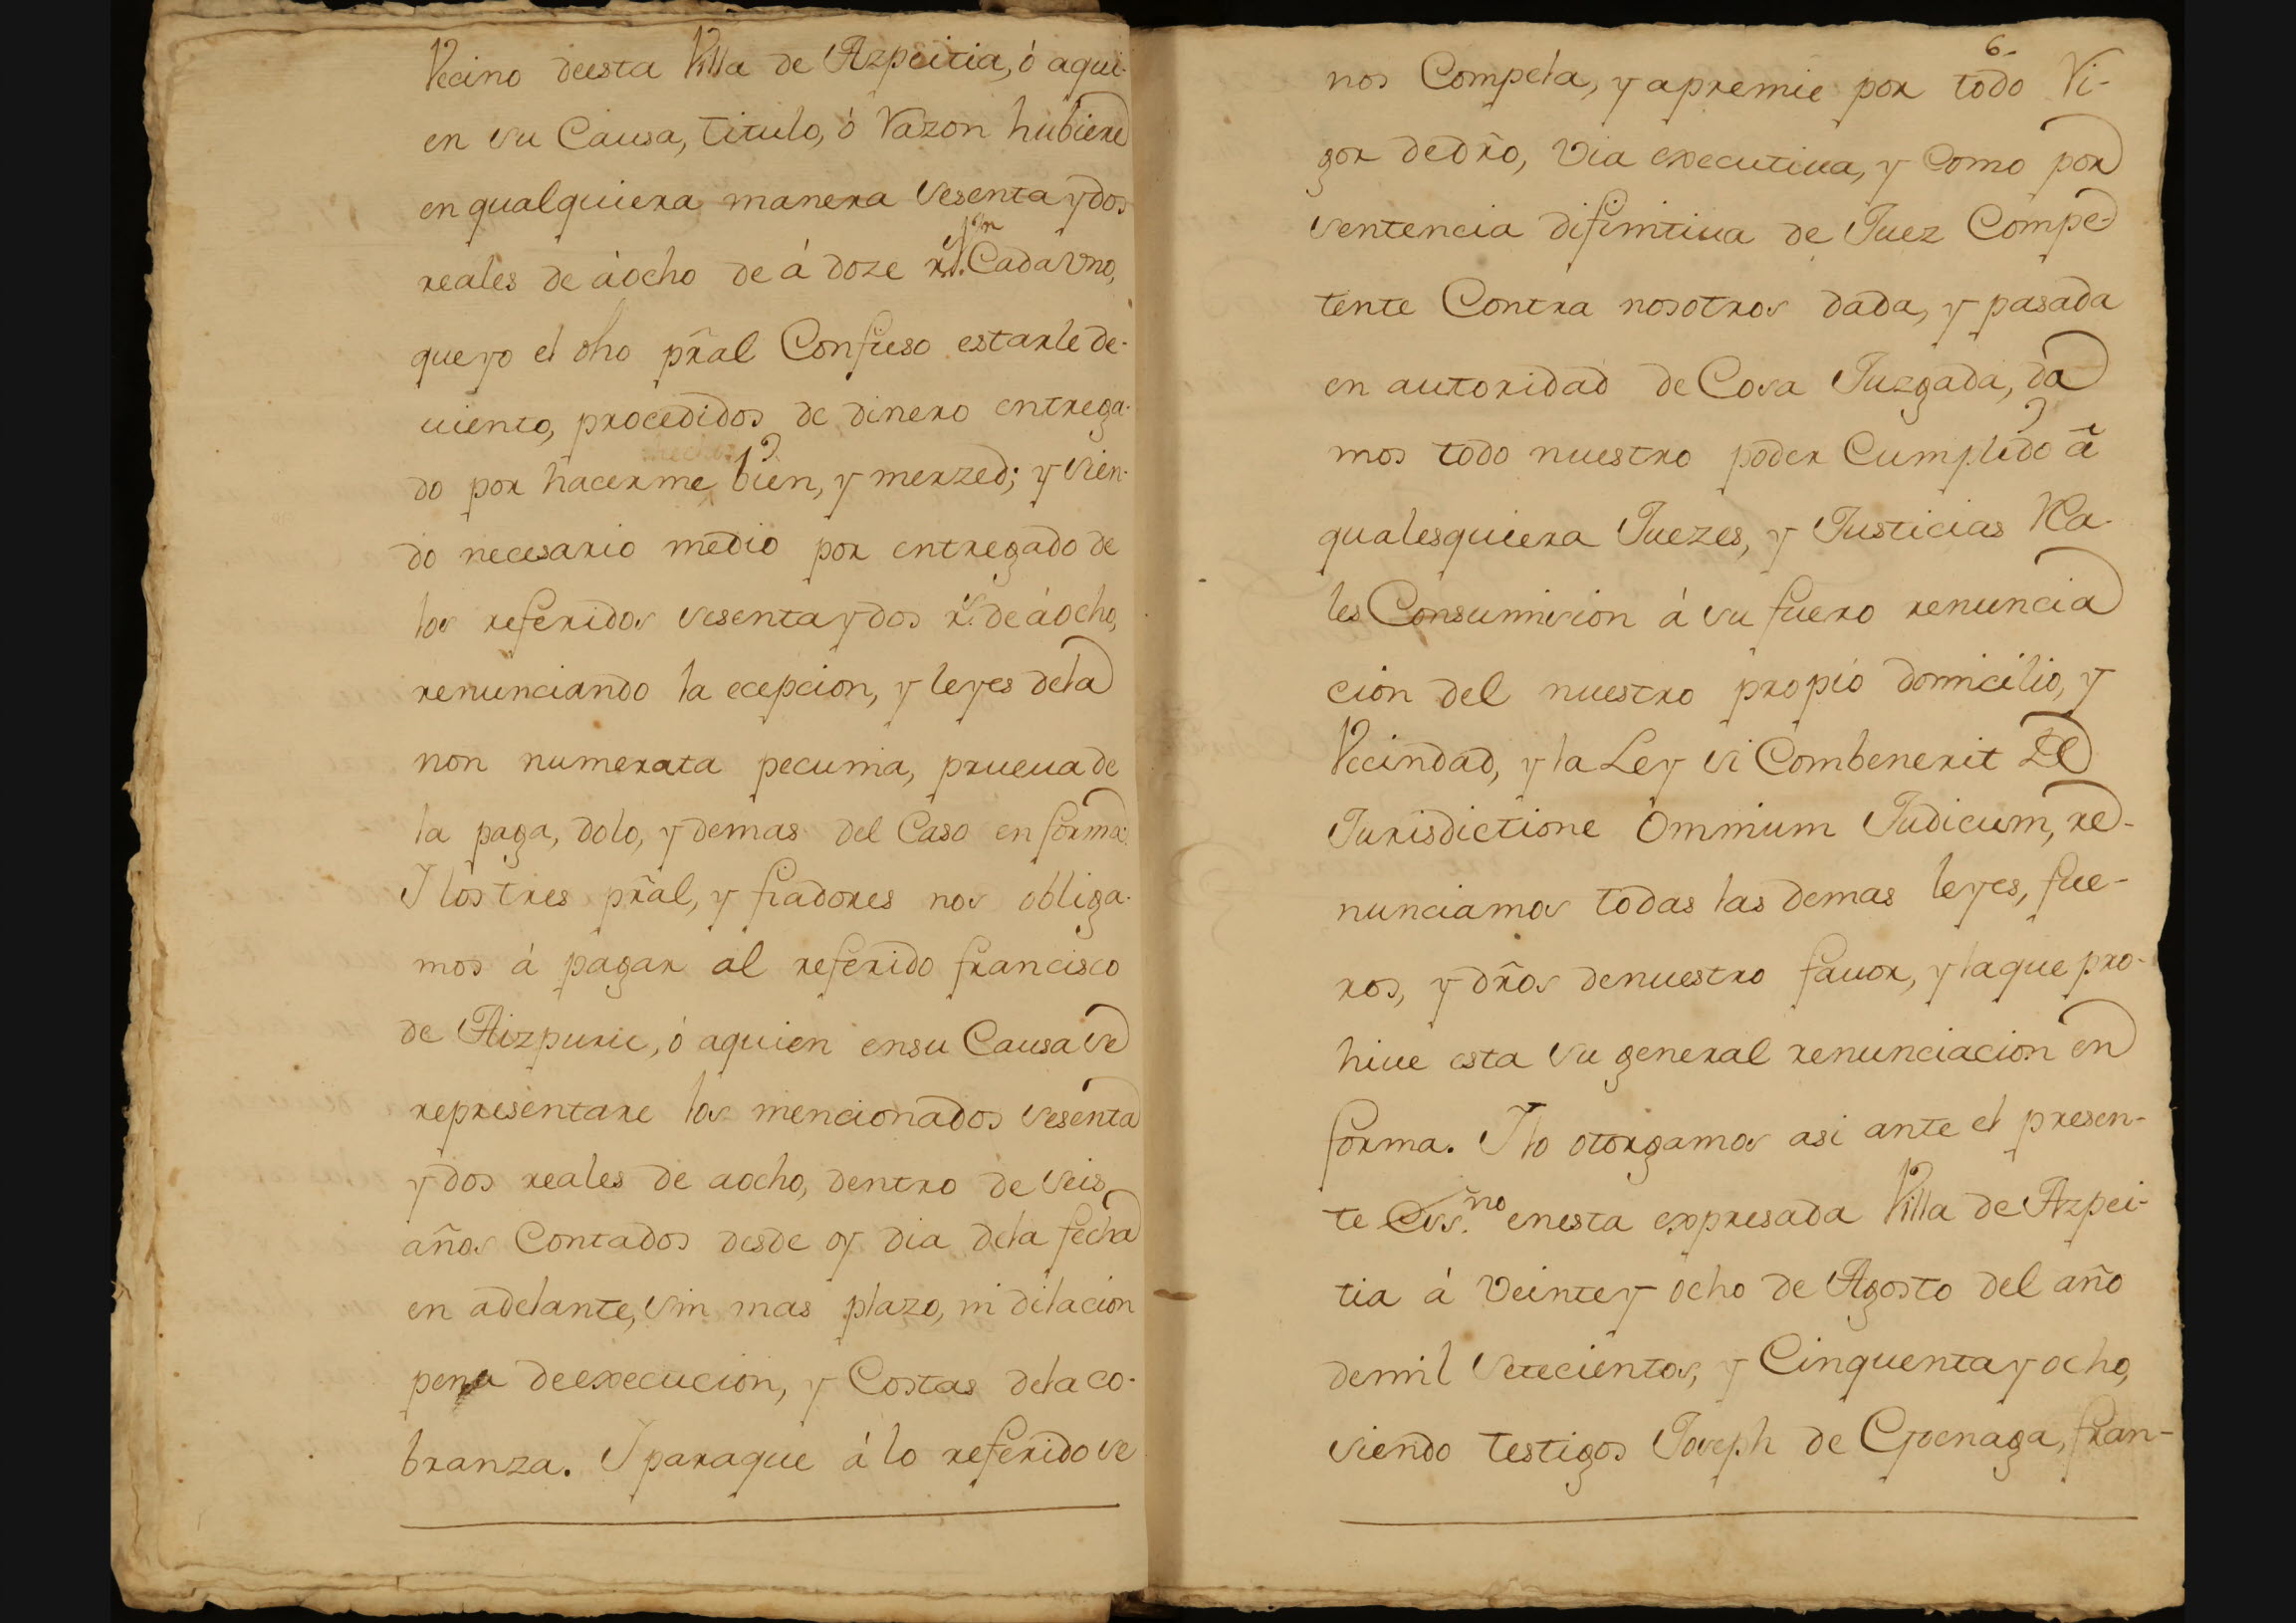 Vecino deesta Villa de Azpeitia, ó aqui-
en su Causa, titulo, ó Razon hubiere
en qualquiera manera Sesenta y dos
reales de áocho de á doze rs. Cada Vno,
que yo el dho prãl Confieso estarle de-
uiento, procedidos de dinero entrega-
do por hacerme bien, y merzed; y Sien-
do necesario medio por entregado de
los referidos sesenta y dos rs. de áocho,
renunciando la ecepcion, y leyes dela
non numerata pecunia, prueua de
la paga, dolo, y demas del Caso en forma.
I los tres prãl, y fiadores nos obliga-
mos á pagar al referido francisco
de Aizpuru, ó aquien ensu Causa se
representare los mencionados sesenta
y dos reales de aocho, dentro de seis
años Contados desde oy dia dela fecha
en adelante, sin mas plazo, ni dilacion
pena deexecucion, y Costas dela co-
branza. I paraque á lo referido se
6-
nos Compela, y apremie por todo Ri-
gor dedrõ, via executiua, y Como por
sentencia difinitiua de Juez Compe-
tente Contra nosotros dada, y pasada
en autoridad de Cosa Juzgada, da
mos todo nuestro poder Cumplido â
qualesquiera Juezes, y Justicias Rea-
les Consumision á su fuero renuncia
cion del nuestro propio domicilio, y
Vecindad, y la Ley si Combenerit De
Jurisdictione Omnium Judicum, re-
nunciamos todas las demas leyes, fue-
ros, y drõs denuestro fauor, y laque pro-
hiue esta su general renunciacion en
forma. I lo otorgamos asi ante el presen-
te Essno. enesta expresada Villa de Azpei-
tia á Veinte y ocho de Agosto del año
demil setecientos, y Cinquenta y ocho,
siendo testigos Joseph de Goenaga, fran-